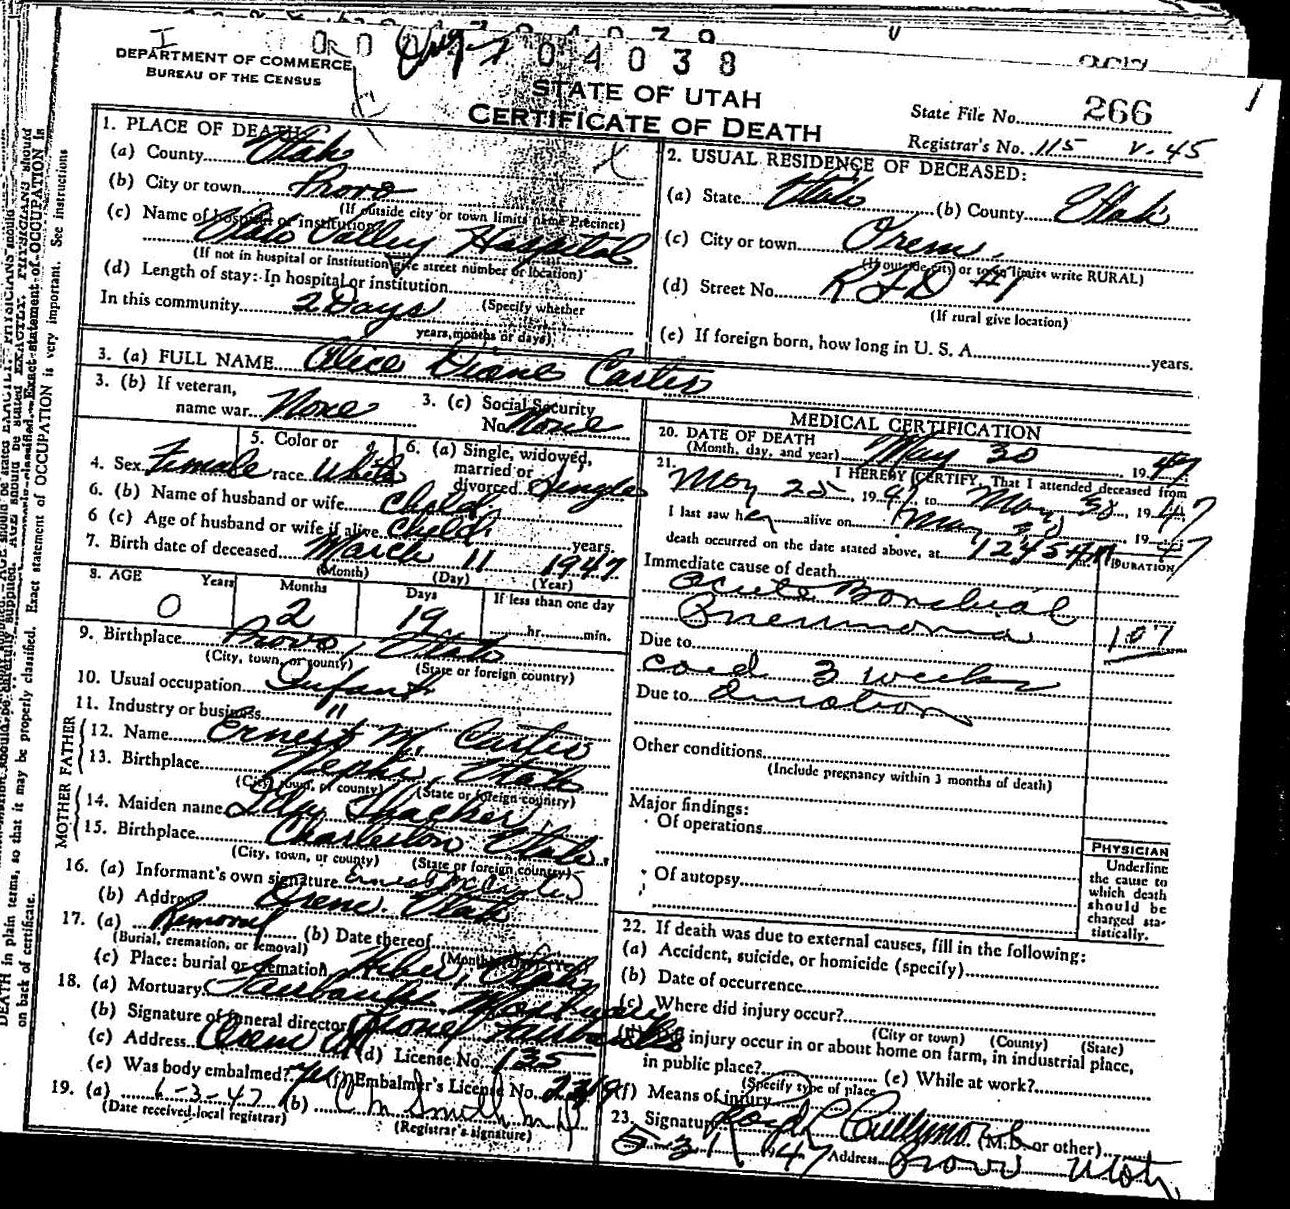 0 0 Aug 7 0 4 0 3 8
DEPARTMENT OF COMMERCE
BUREAU OF THE CENSUS
STATE OF UTAH
CERTIFICATE OF DEATH
State File No. 266
Registrar's No. 115 V-45
1. PLACE OF DEATH:
(a) County Utah
(b) City or town Provo
(If outside city or town limits name Precinct)
(c) Name of hospital or institution
Utah Valley Hospital
(If not in hospital or institution give street number or location)
(d) Length of stay: In hospital or institution
In this community 2 Days (Specify whether
years, months or days)
2. USUAL RESIDENCE OF DECEASED:
(a) State Utah (b) County Utah
(c) City or town Orem,
(If outside city or town limits write RURAL)
(d) Street No. RFD #1
(If rural give location)
(e) If foreign born, how long in U. S. A. years.
3. (a) FULL NAME Alice Diane Carter
3. (b) If veteran, name war None
3. (c) Social Security No. None
4. Sex Female
5. Color or race White
6. (a) Single, widowed, married or divorced Single
6. (b) Name of husband or wife Child
6 (c) Age of husband or wife if alive Child years.
7. Birth date of deceased March 11 1947
(Month) (Day) (Year)
8. AGE Years Months Days If less than one day
0 2 19 hr. min.
9. Birthplace Provo, Utah
(City, town, or county) (State or foreign country)
10. Usual occupation Infant
11. Industry or business "
FATHER
12. Name Ernest M. Carter
13. Birthplace Nephi, Utah
(City, town, or county) (State or foreign country)
MOTHER
14. Maiden name Thacker
15. Birthplace Charleston Utah
(City, town, or county) (State or foreign country)
16. (a) Informant's own signature Ernest M Carter
(b) Address Orem. Utah
17. (a) Removal (b) Date thereof
(Burial, cremation, or removal)
(c) Place: burial or cremation Heber, Utah
18. (a) Mortuary Fairbanks Mortuary
(b) Signature of funeral director Fairbanks
(c) Address Orem Ut (d) License No. 135
(e) Was body embalmed? yes (f) Embalmer's License No. 2319
19. (a) 6-3-47 (b) Smith M D
(Date received local registrar) (Registrar's signature)
MEDICAL CERTIFICATION
20. DATE OF DEATH
(Month, day, and year) May 30 1947
21. I HEREBY CERTIFY, That I attended deceased from
May 25 1947 to May 30, 1947
I last saw her alive on May 30 1947
death occurred on the date stated above, at 1245 AM m.
DURATION
Immediate cause of death
acute Bronchial
Pneumonia
107
Due to
cold 3 weeks
Due to duration
Other conditions
(Include pregnancy within 3 months of death)
Major findings:
Of operations
Of autopsy
PHYSICIAN
Underline
the cause to
which death
should be
charged sta-
tistically.
22. If death was due to external causes, fill in the following:
(a) Accident, suicide, or homicide (specify)
(b) Date of occurrence
(c) Where did injury occur?
(City or town) (County) (State)
injury occur in or about home on farm, in industrial place,
in public place? (e) While at work?
(Specify type of place)
(f) Means of injury
23. Signature (M.D. or other)
5-31 1947 Address Provo Utah
DEATH in plain terms, so that it may be properly classified. Exact statement of OCCUPATION is very important. See instructions
on back of certificate.